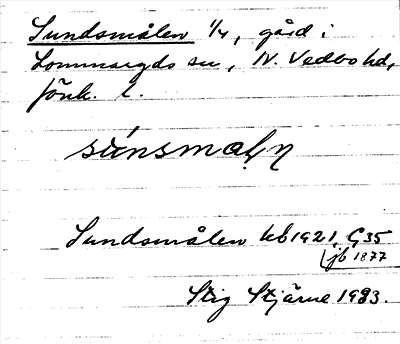 Sundsmålen 1/4, gård i
Lommaryds sn, N. Vedbo hd,
Jönk. l.
súnsmaļn
Sundsmålen kb 1921, G35
jb 1877
Stig Stjärne 1933.